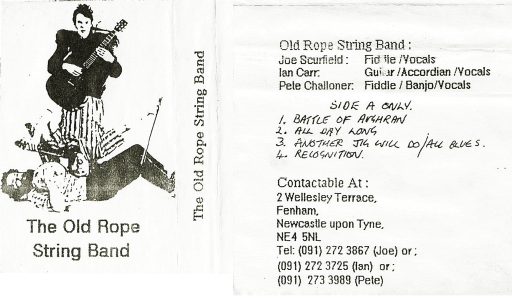 The Old Rope
String Band
The Old Rope String Band
Old Rope String Band :
Joe Scurfield : Fiddle /Vocals
Ian Carr: Guitar /Accordian /Vocals
Pete Challoner: Fiddle / Banjo/Vocals
SIDE A ONLY.
1. BATTLE OF AUGHRAN
2. ALL DAY LONG
3. ANOTHER JIG WILL DO/ALL BLUES.
4. RECOGNITION.
Contactable At :
2 Wellesley Terrace,
Fenham,
Newcastle upon Tyne,
NE4 5NL
Tel: (091) 272 3867 (Joe) or ;
(091) 272 3725 (Ian) or ;
(091) 273 3989 (Pete)